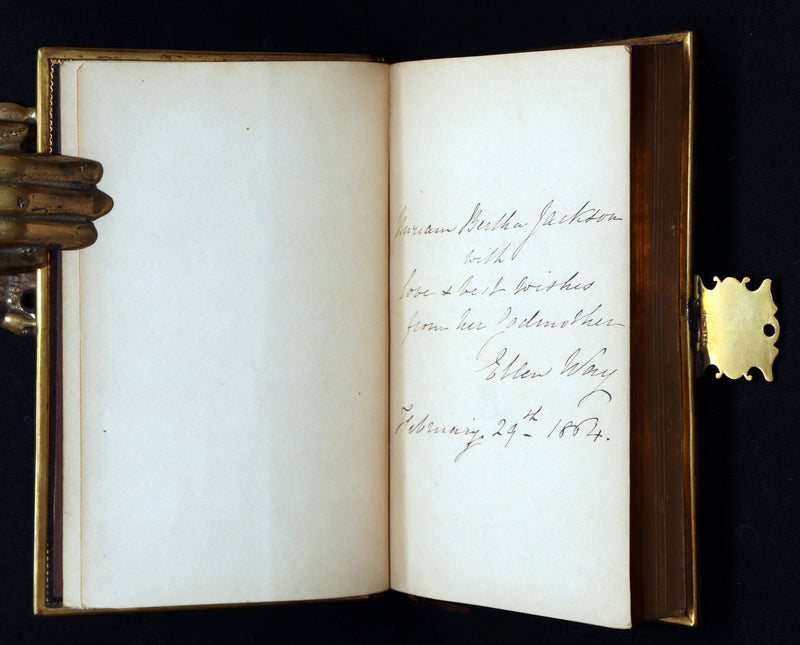 Miriam Bertha Jackson
with
love & best wishes
from her Godmother
Ellen Way
February 29th 1864.